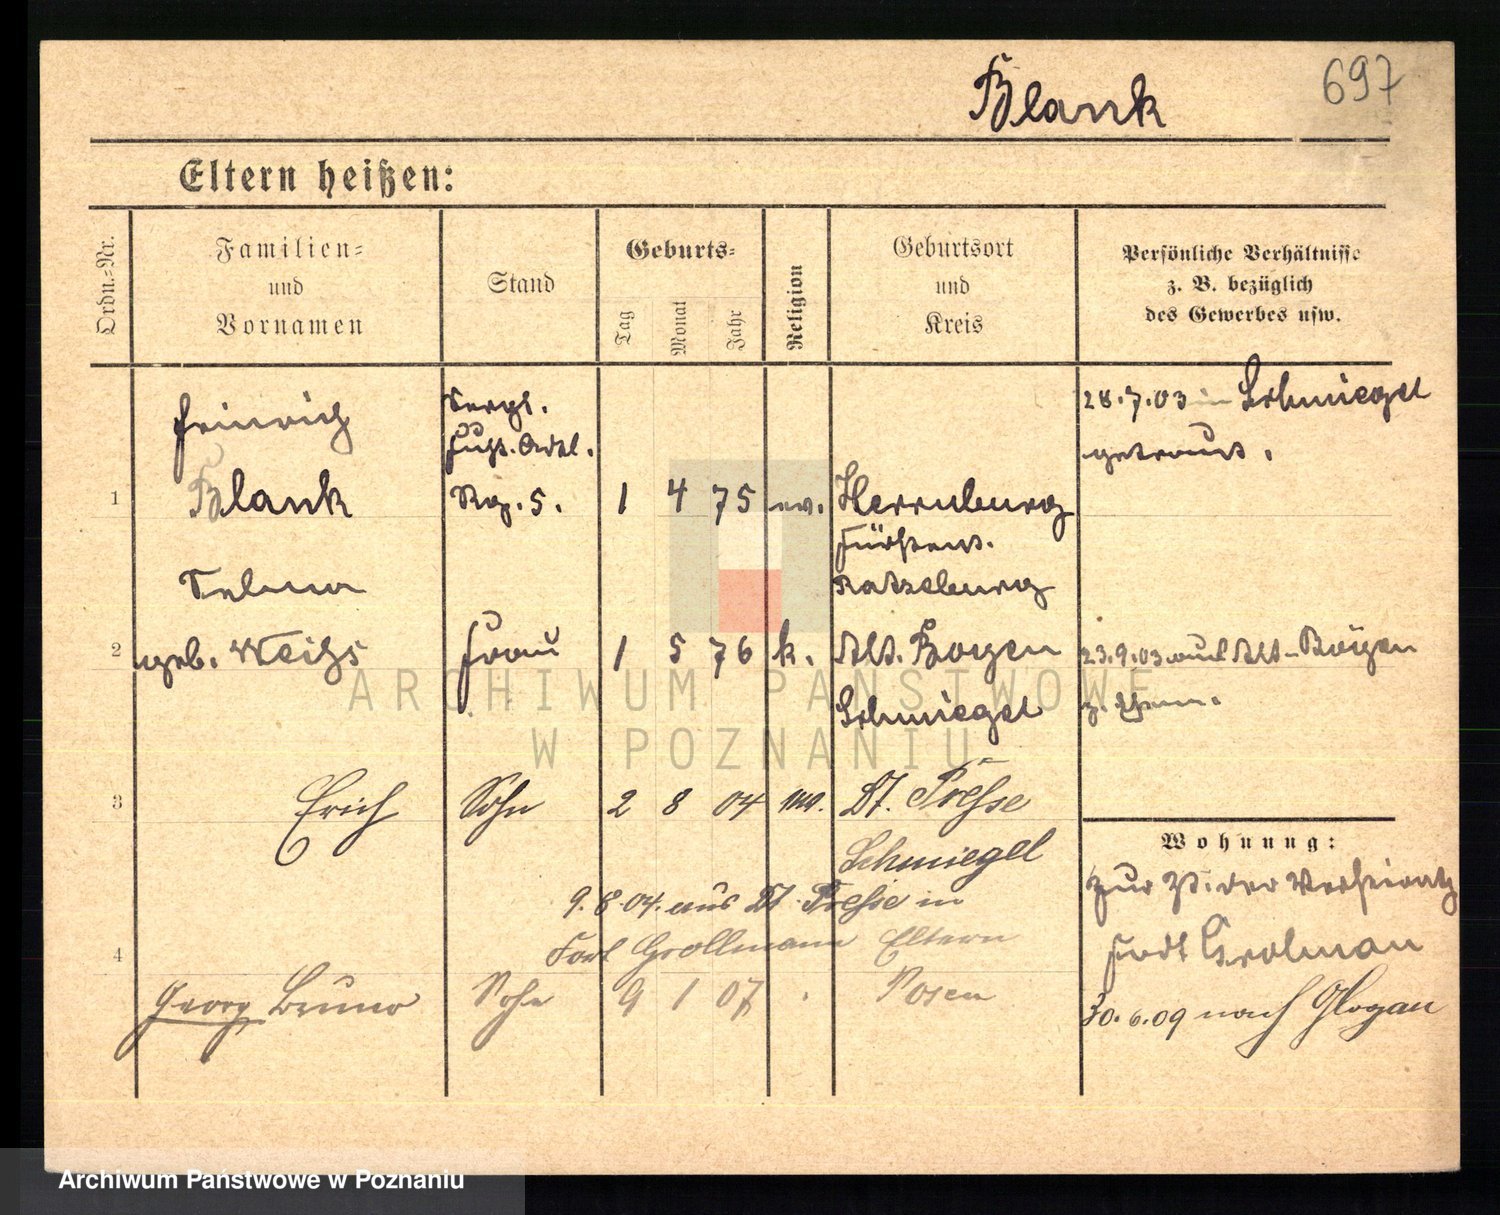 Blank 697
Eltern heißen:
Ordn.-Nr. Familien- und Vornamen Stand Geburts- Tag Monat Jahr Religion Geburtsort und Kreis Persönliche Verhältnisse z. B. bezüglich des Gewerbes usw.
Heinrich Sergt. 28.7.03 in Schmiegel
Fußt. Artl. getraut.
1 Blank Rg. 5. 1 4 75 ev. Herrnburg
Fürstent.
Selma Ratzeburg
2 geb. Weihs Frau 1 5 76 k. Alt. Boyen 23.9.03 aus Alt-Boyen
Schmiegel z. Ehem.
3 Erich Sohn 2 8 04 Dt. Presse
Wohnung:
Schmiegel
zur Zt. der Verheiratg
9.8.04. aus Dt. Presse in
Fort Grolman
4 Fort Grollmann Eltern
Georg Bruno Sohn 9 1 07 Posen
30.6.09 nach Glogau
ARCHIWUM PAŃSTWOWE
W POZNANIU
Archiwum Państwowe w Poznaniu